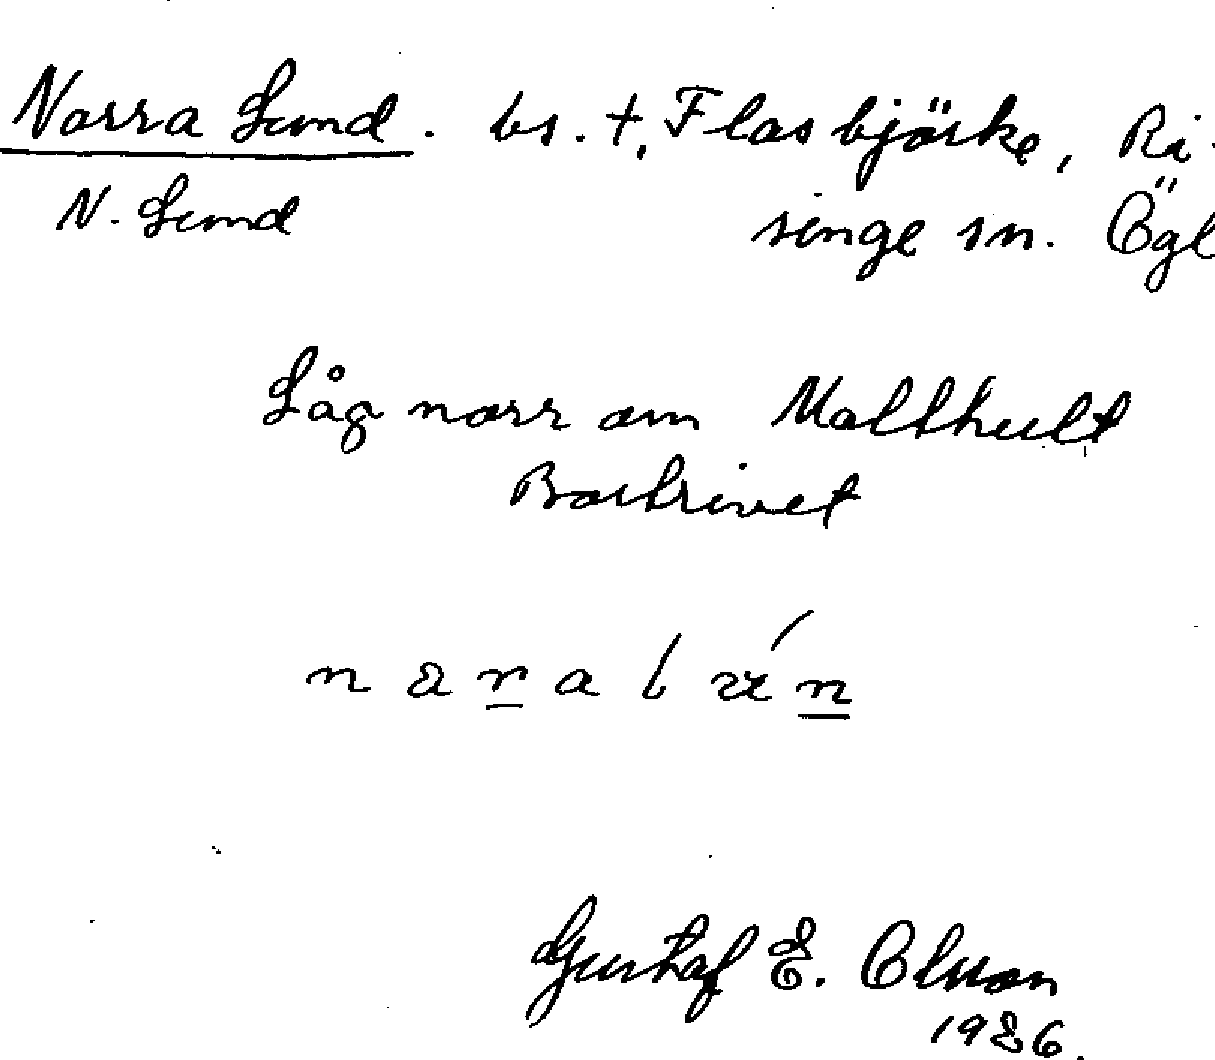 Norra Lund. bs. t. Flasbjörke, Ri-
N. Lund singe sn. Ögl
Låg norr om Malthult
Bortrivet
Gustaf E. Olsson
1926.